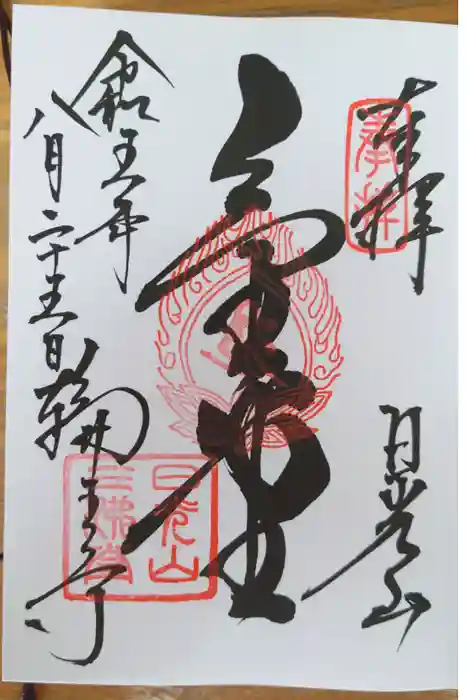 奉拝
日光山
金堂
令和五年
八月二十五日
輪王寺
奉拝
日光山
三佛堂